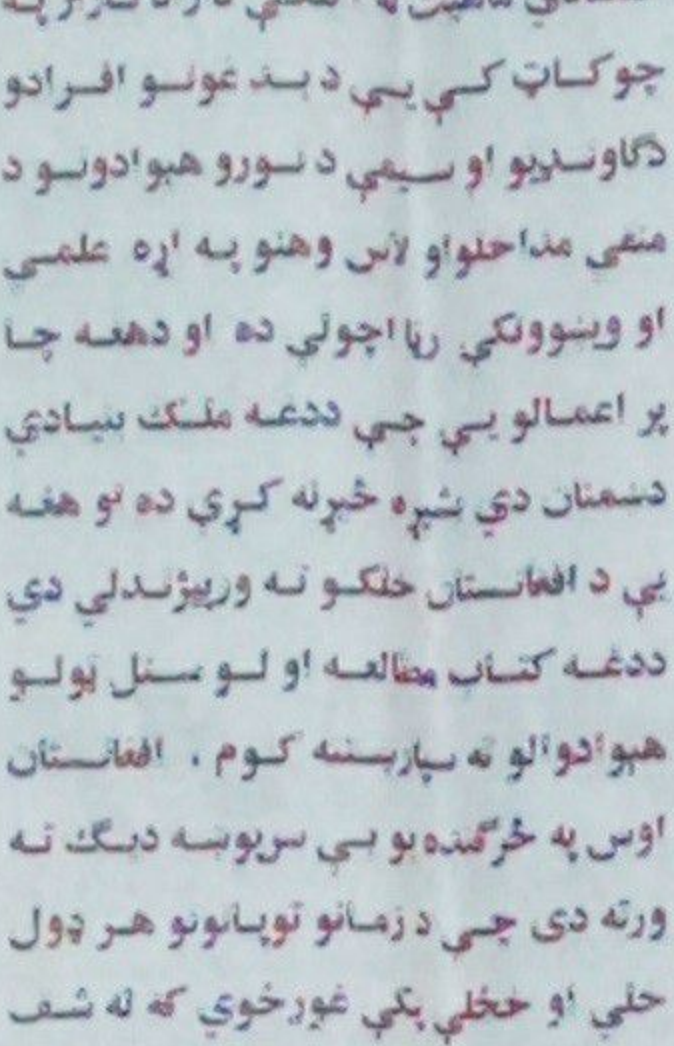 چوکاټ کې یې د بد غونو افرادو
دګاونډیو او سیمې د نورو هیوادونو د
منفي مداخلو او لاس وهنو په اړه علمي
او ویښوونکې رڼا اچولې ده او دهغه چا
پر اعمالو یې چې ددغه ملک بنیادي
دښمنان دي شپړه څېړنه کړې ده نو هغه
یې د افغانستان خلکو ته ورپیژندلي دي
ددغه کتاب مطالعه او لوستل ټولو
هیوادوالو ته سپارښتنه کوم . افغانستان
اوس په څرګنده یو بې سرپوښه دیګ ته
ورته دی چې د زمانو توپانونو هر ډول
خلي او ځخلې پکې غورځوي که له شف